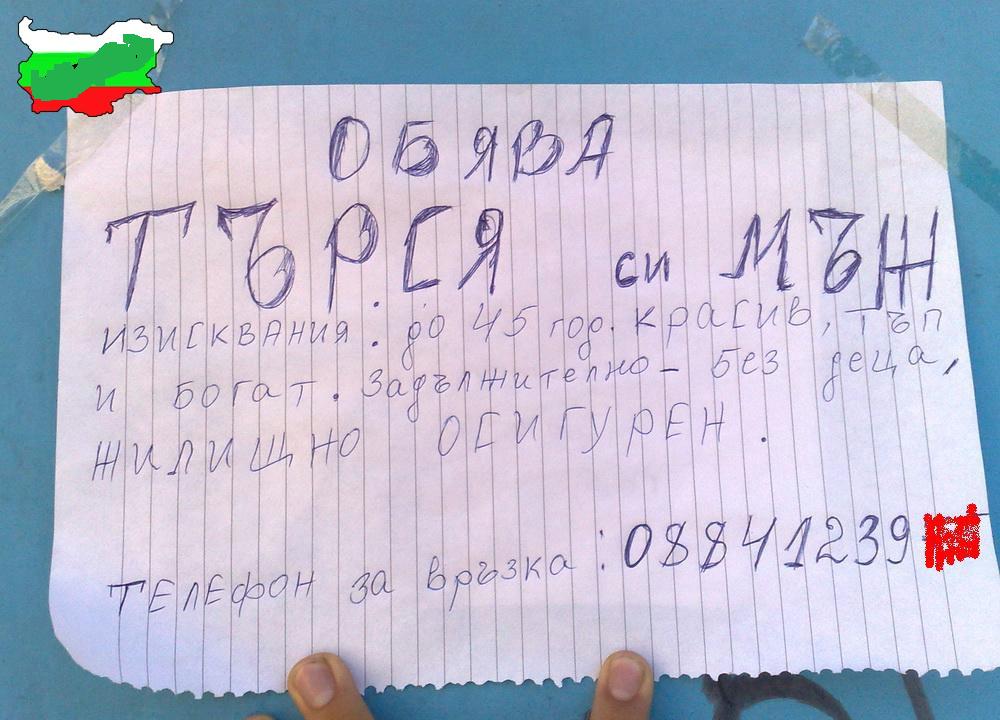 ОБЯВА
ТЪРСЯ си МЪЖ
изисквания: до 45 год. красив, тъп
и богат. Задължително – без деца,
жилищно осигурен.
Телефон за връзка: 08841239